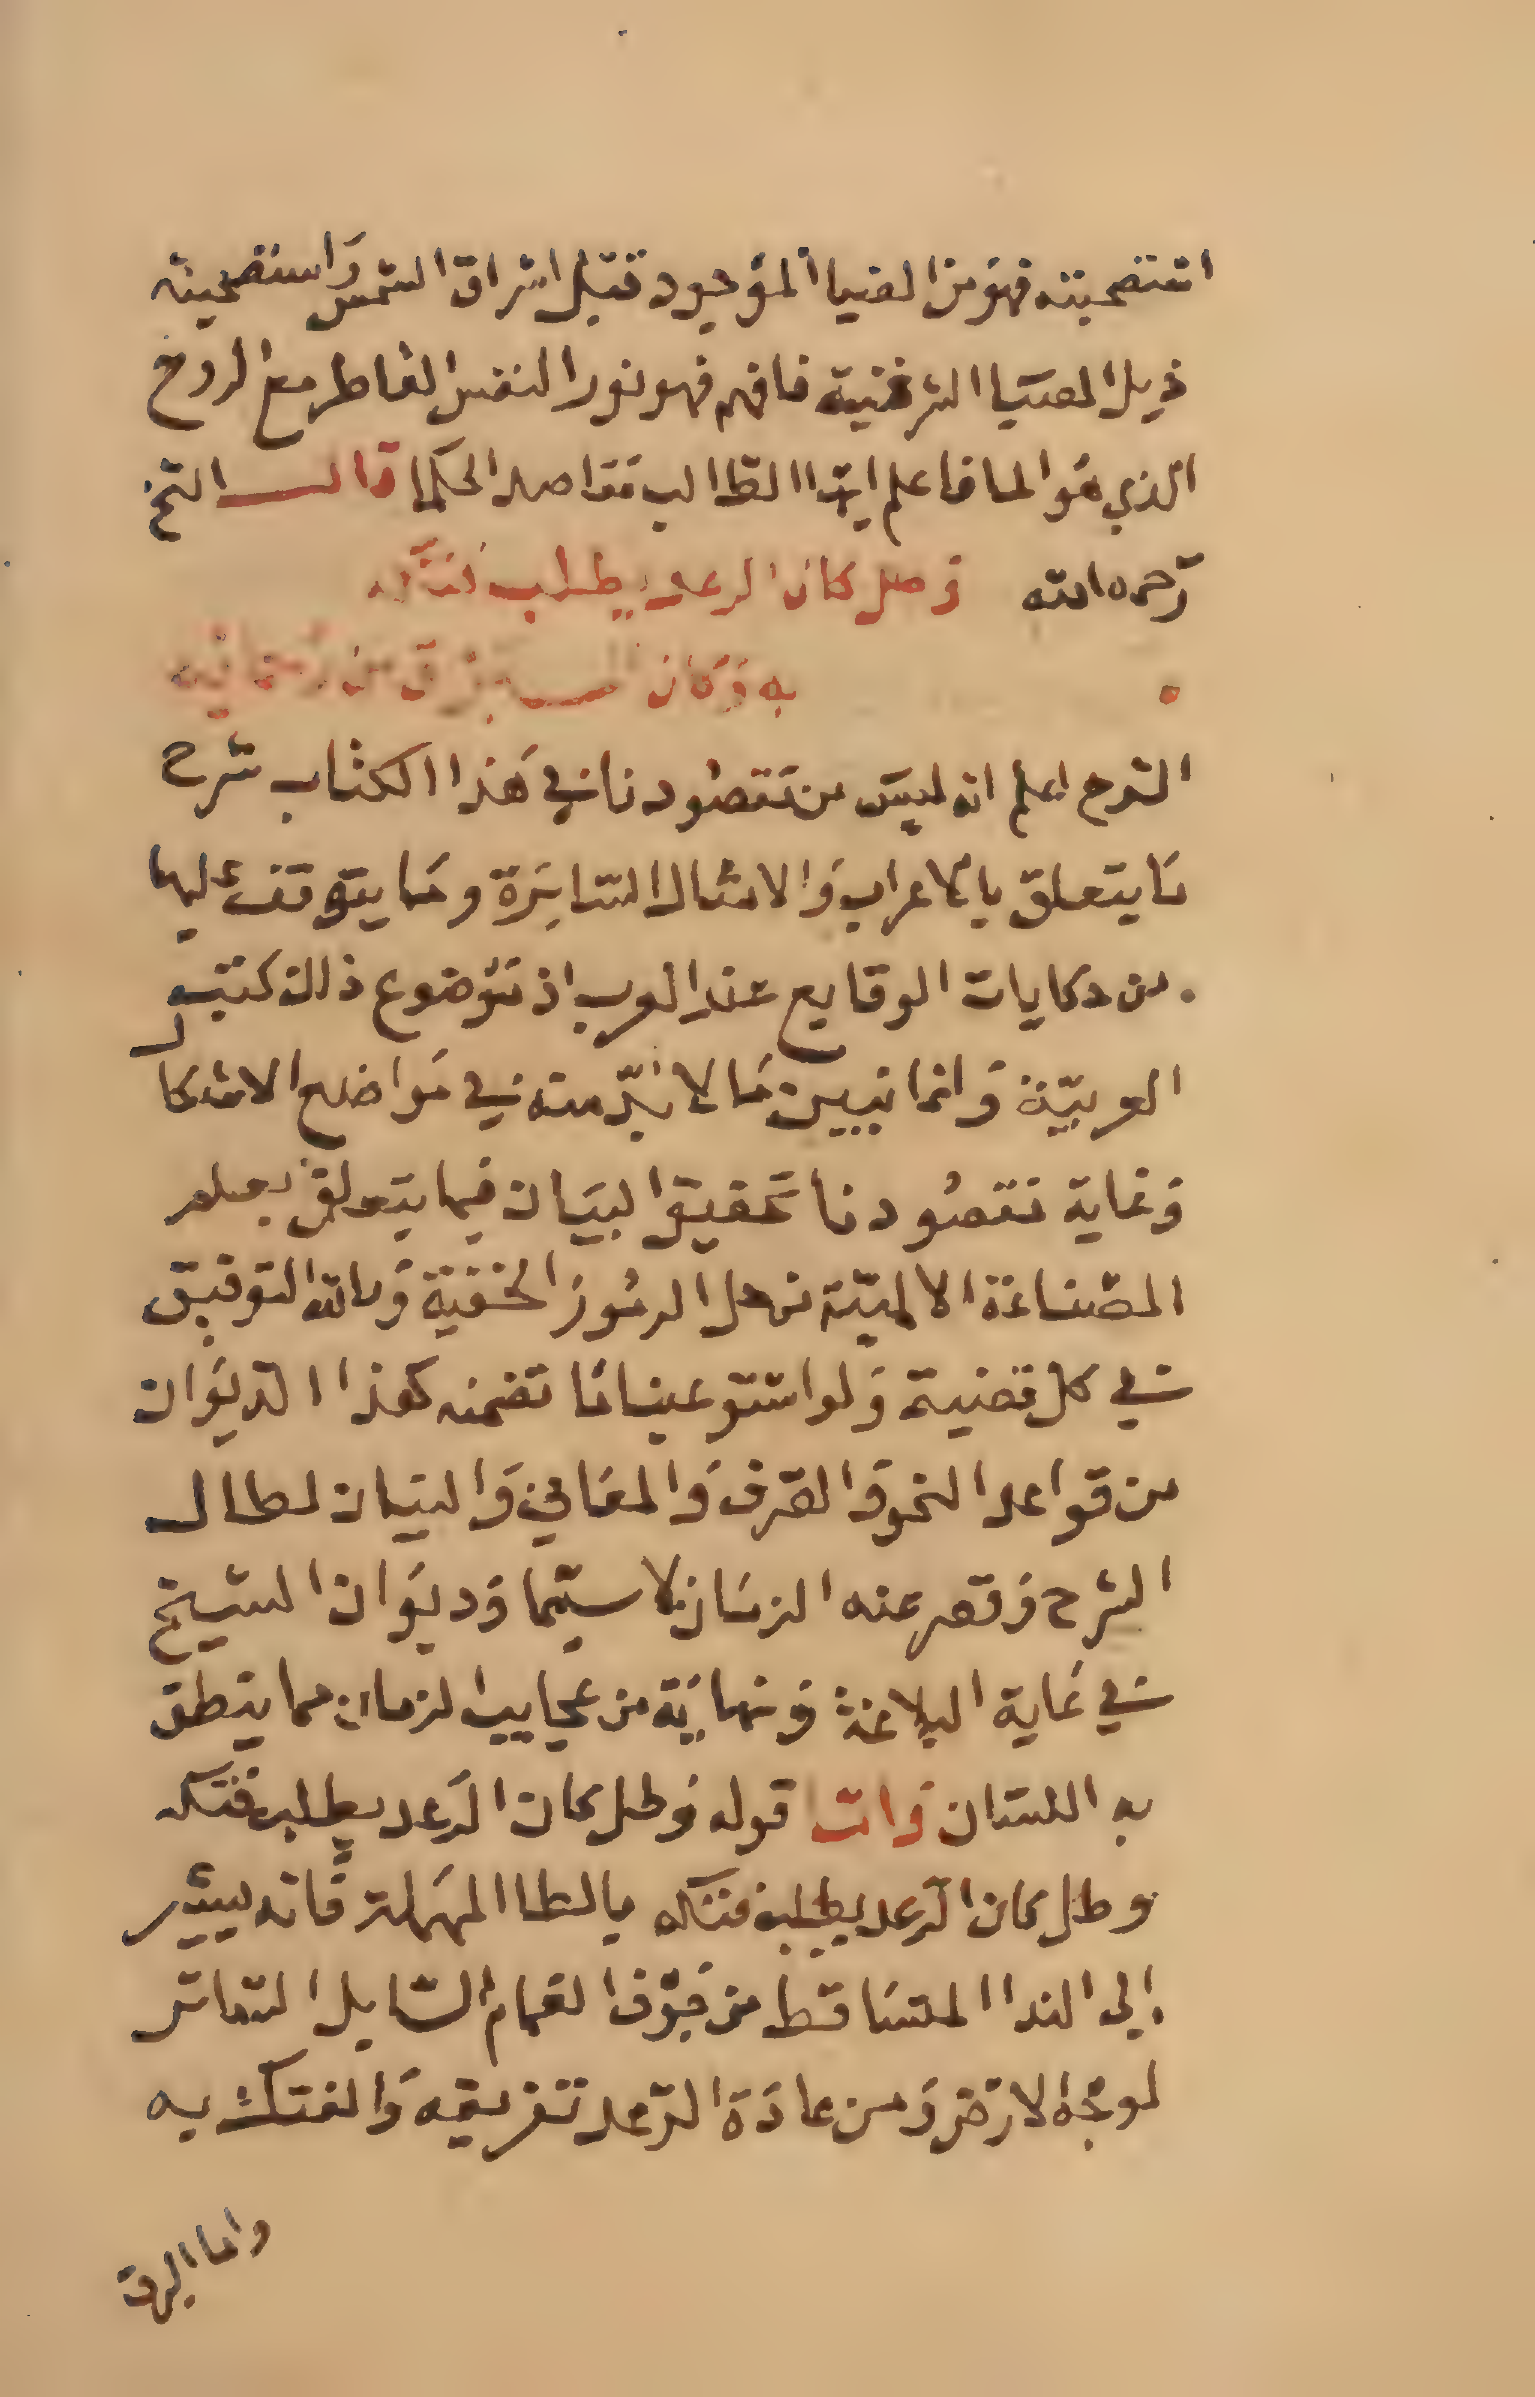 استضحيته فهو من الضيا الموجود قبل اشراق الشمس واستضحيته
ذيل الضيا الشرقية فافهم فهو نور النفس القاطر مع الروح
الذي هو الما فاعلم ايها الطالب مقاصد الحكما قال الشيخ
رحمه الله وطل كان الرعد يطلب فتكه
به وكان البرق من
الشرح اعلم انه ليس من مقصودنا في هذا الكتاب شرح
ما يتعلق بالاعراب والامثال السايرة وما يتوقف عليها
من حكايات الوقايع عند العرب اذ موضوع ذلك كتب
العربية وانما نبين ما لا بد منه في مواضع الاشكال
وغاية مقصودنا تحقيق البيان فيما يتعلق بعلم
الصناعة الالهية من حل الرموز الخفية وبالله التوفيق
في كل قضية ولو استوعبنا ما تضمنه هذا الديوان
من قواعد النحو والصرف والمعاني والبيان لطال
الشرح وقصر عنه الزمان لا سيما وديوان الشيخ
في غاية البلاغة ونهاية من عجايب الزمان مما ينطق
به اللسان واما قوله وطل كان الرعد يطلب فتكه
وطل كان الرعد يطلب فتكه بالطا المهملة فانه يشير
الى الندا المتساقط من جوف الغمام السايل الساتر
لوجه الارض ومن عادة الرعد تفريقه والفتك به
واما البرق